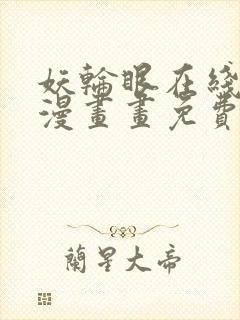 妖輪眼在綫
漫畫畫免費
蘭星大帝